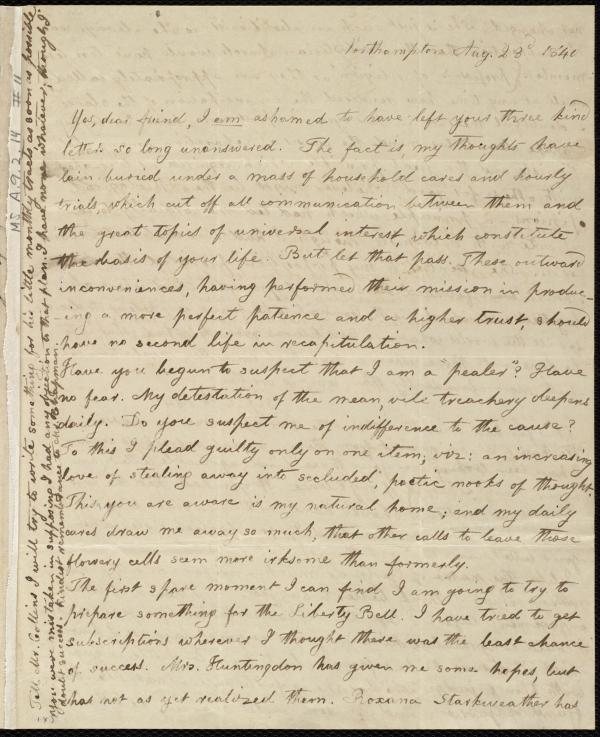 Northampton Aug. 28th 1840
Yes, dear friend, I am ashamed to have left your three kind
letters so long unanswered. The fact is my thoughts have
lain buried under a mass of household cares and hourly
trials, which cut off all communication between them and
the great topics of universal interest, which constitute
the basis of your life. But let that pass. These outward
inconveniences, having performed their mission in produc-
-ing a more perfect patience and a higher trust, should
have no second life in recapitulation.
Have you begun to suspect that I am a "pealer"? Have
no fear. My detestation of the mean, vile treachery deepens
daily. Do you suspect me of indifference to the cause?
To this I plead guilty only on one item; viz: an increasing
love of stealing away into secluded, poetic nooks of thought.
This, you are aware is my natural home; and my daily
cares draw me away so much, that other calls to leave those
flowery cells seem more irksome than formerly.
The first spare moment I can find I am going to try to
prepare something for the Liberty Bell. I have tried to get
subscriptions wherever I thought there was the least chance
of success. Mrs. Huntingdon has given me some hopes, but
has not as yet realized them. Roxana Starkweather has
Tell Mr. Collins I will try to write something for his little monthly tracts as soon as possible
You were mistaken in supposing I had any objection to that plan. I have none whatever; though I
doubt success. Kindest remembrance to Chapman.
MS. A. 9. 2. 14 # 11